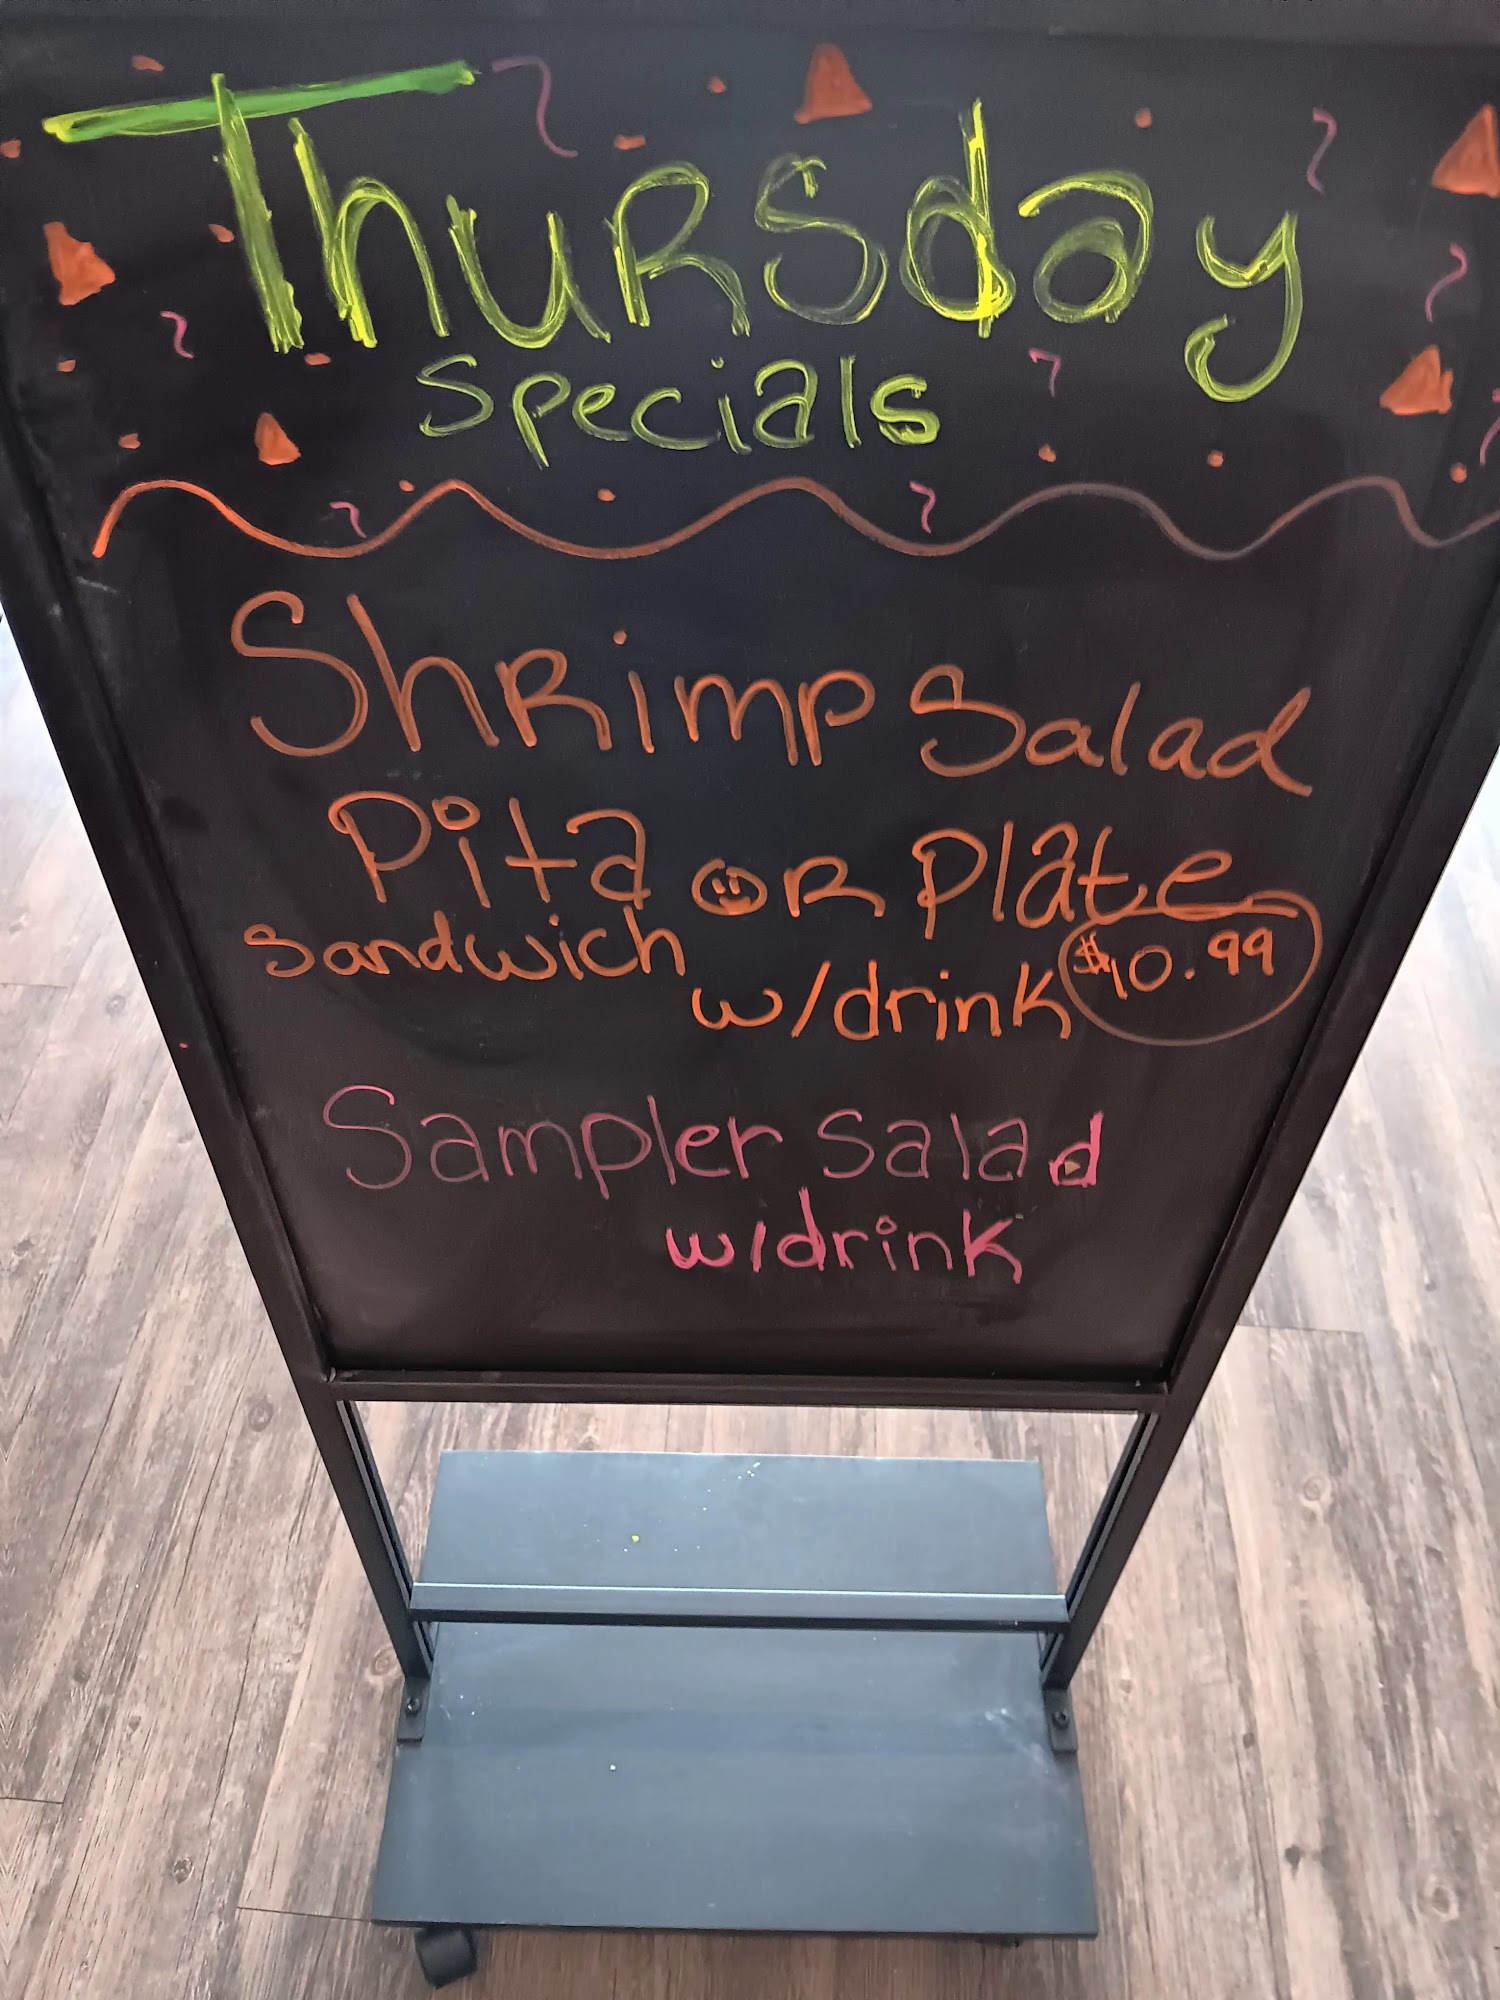 Thursday
Specials
Shrimp Salad
Pita or Plate
Sandwich
w/drink $10.99
Sampler Salad
w/drink